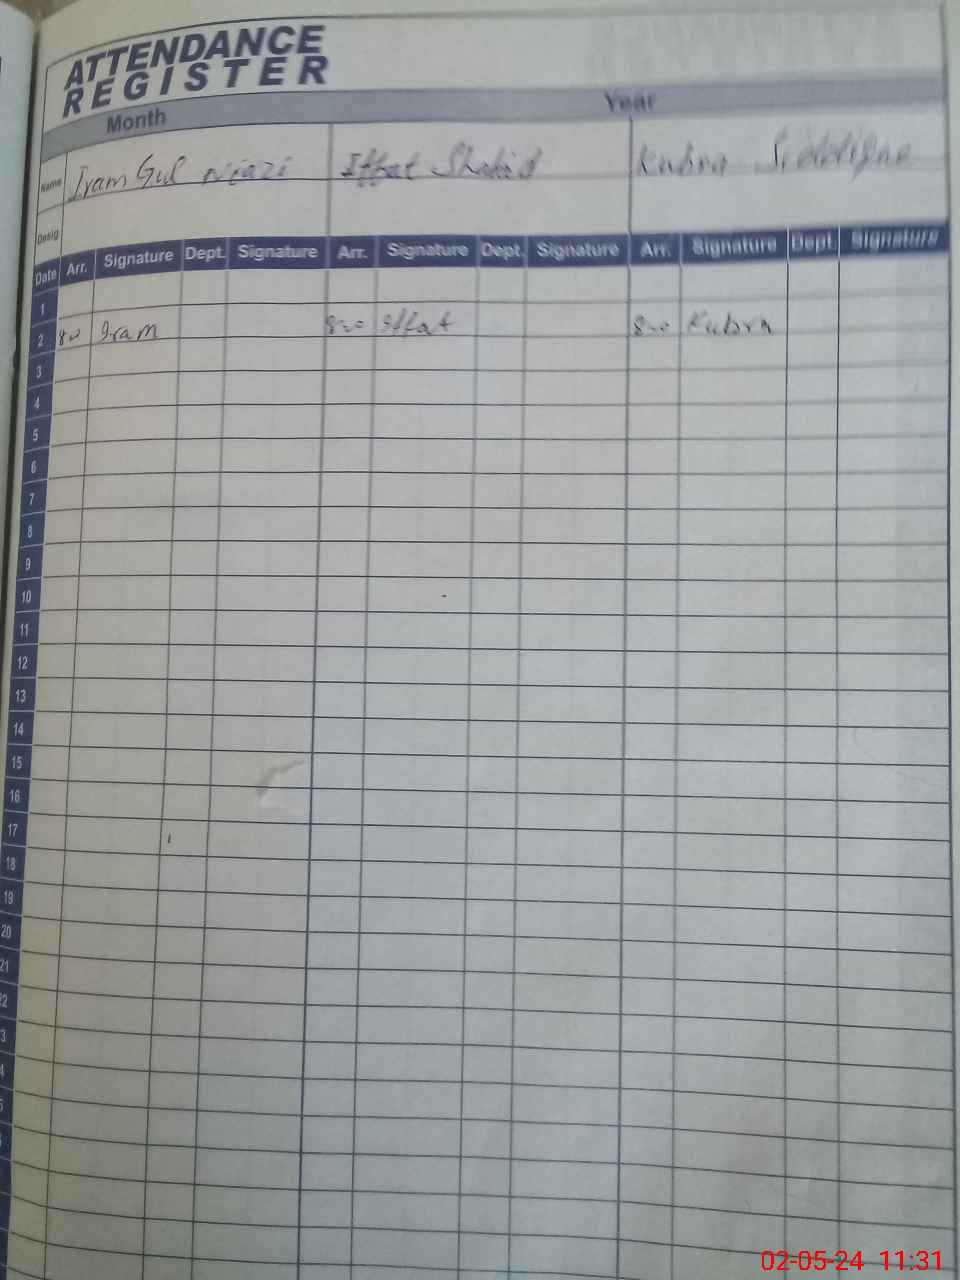 ATTENDANCE
REGISTER
Month Year
Name Iram Gul Niazi Iffat Shahid Kubra Siddiqua
Desig
Date Arr. Signature Dept. Signature Arr. Signature Dept. Signature Arr. Signature Dept. Signature
1
2 8:00 Iram 8:00 Iffat 8:00 Kubra
3
4
5
6
7
8
9
10
11
12
13
14
15
16
17
18
19
20
21
22
3
4
5
02-05-24 11:31